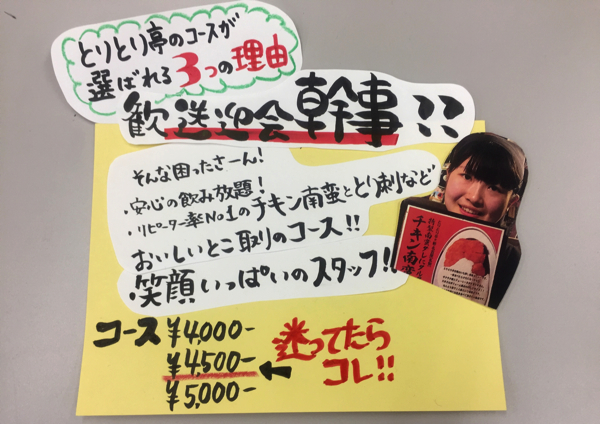 とりとり亭のコースが
選ばれる3つの理由
歓送迎会幹事??
そんな困ったさーん!
・安心の飲み放題!
・リピーター率No1のチキン南蛮ととり刺など
おいしいとこ取りのコース!!
笑顔いっぱいのスタッフ!!
チキン南蛮
コース ¥4,000-
¥4,500- ← 迷ってたら
コレ!!
¥5,000-